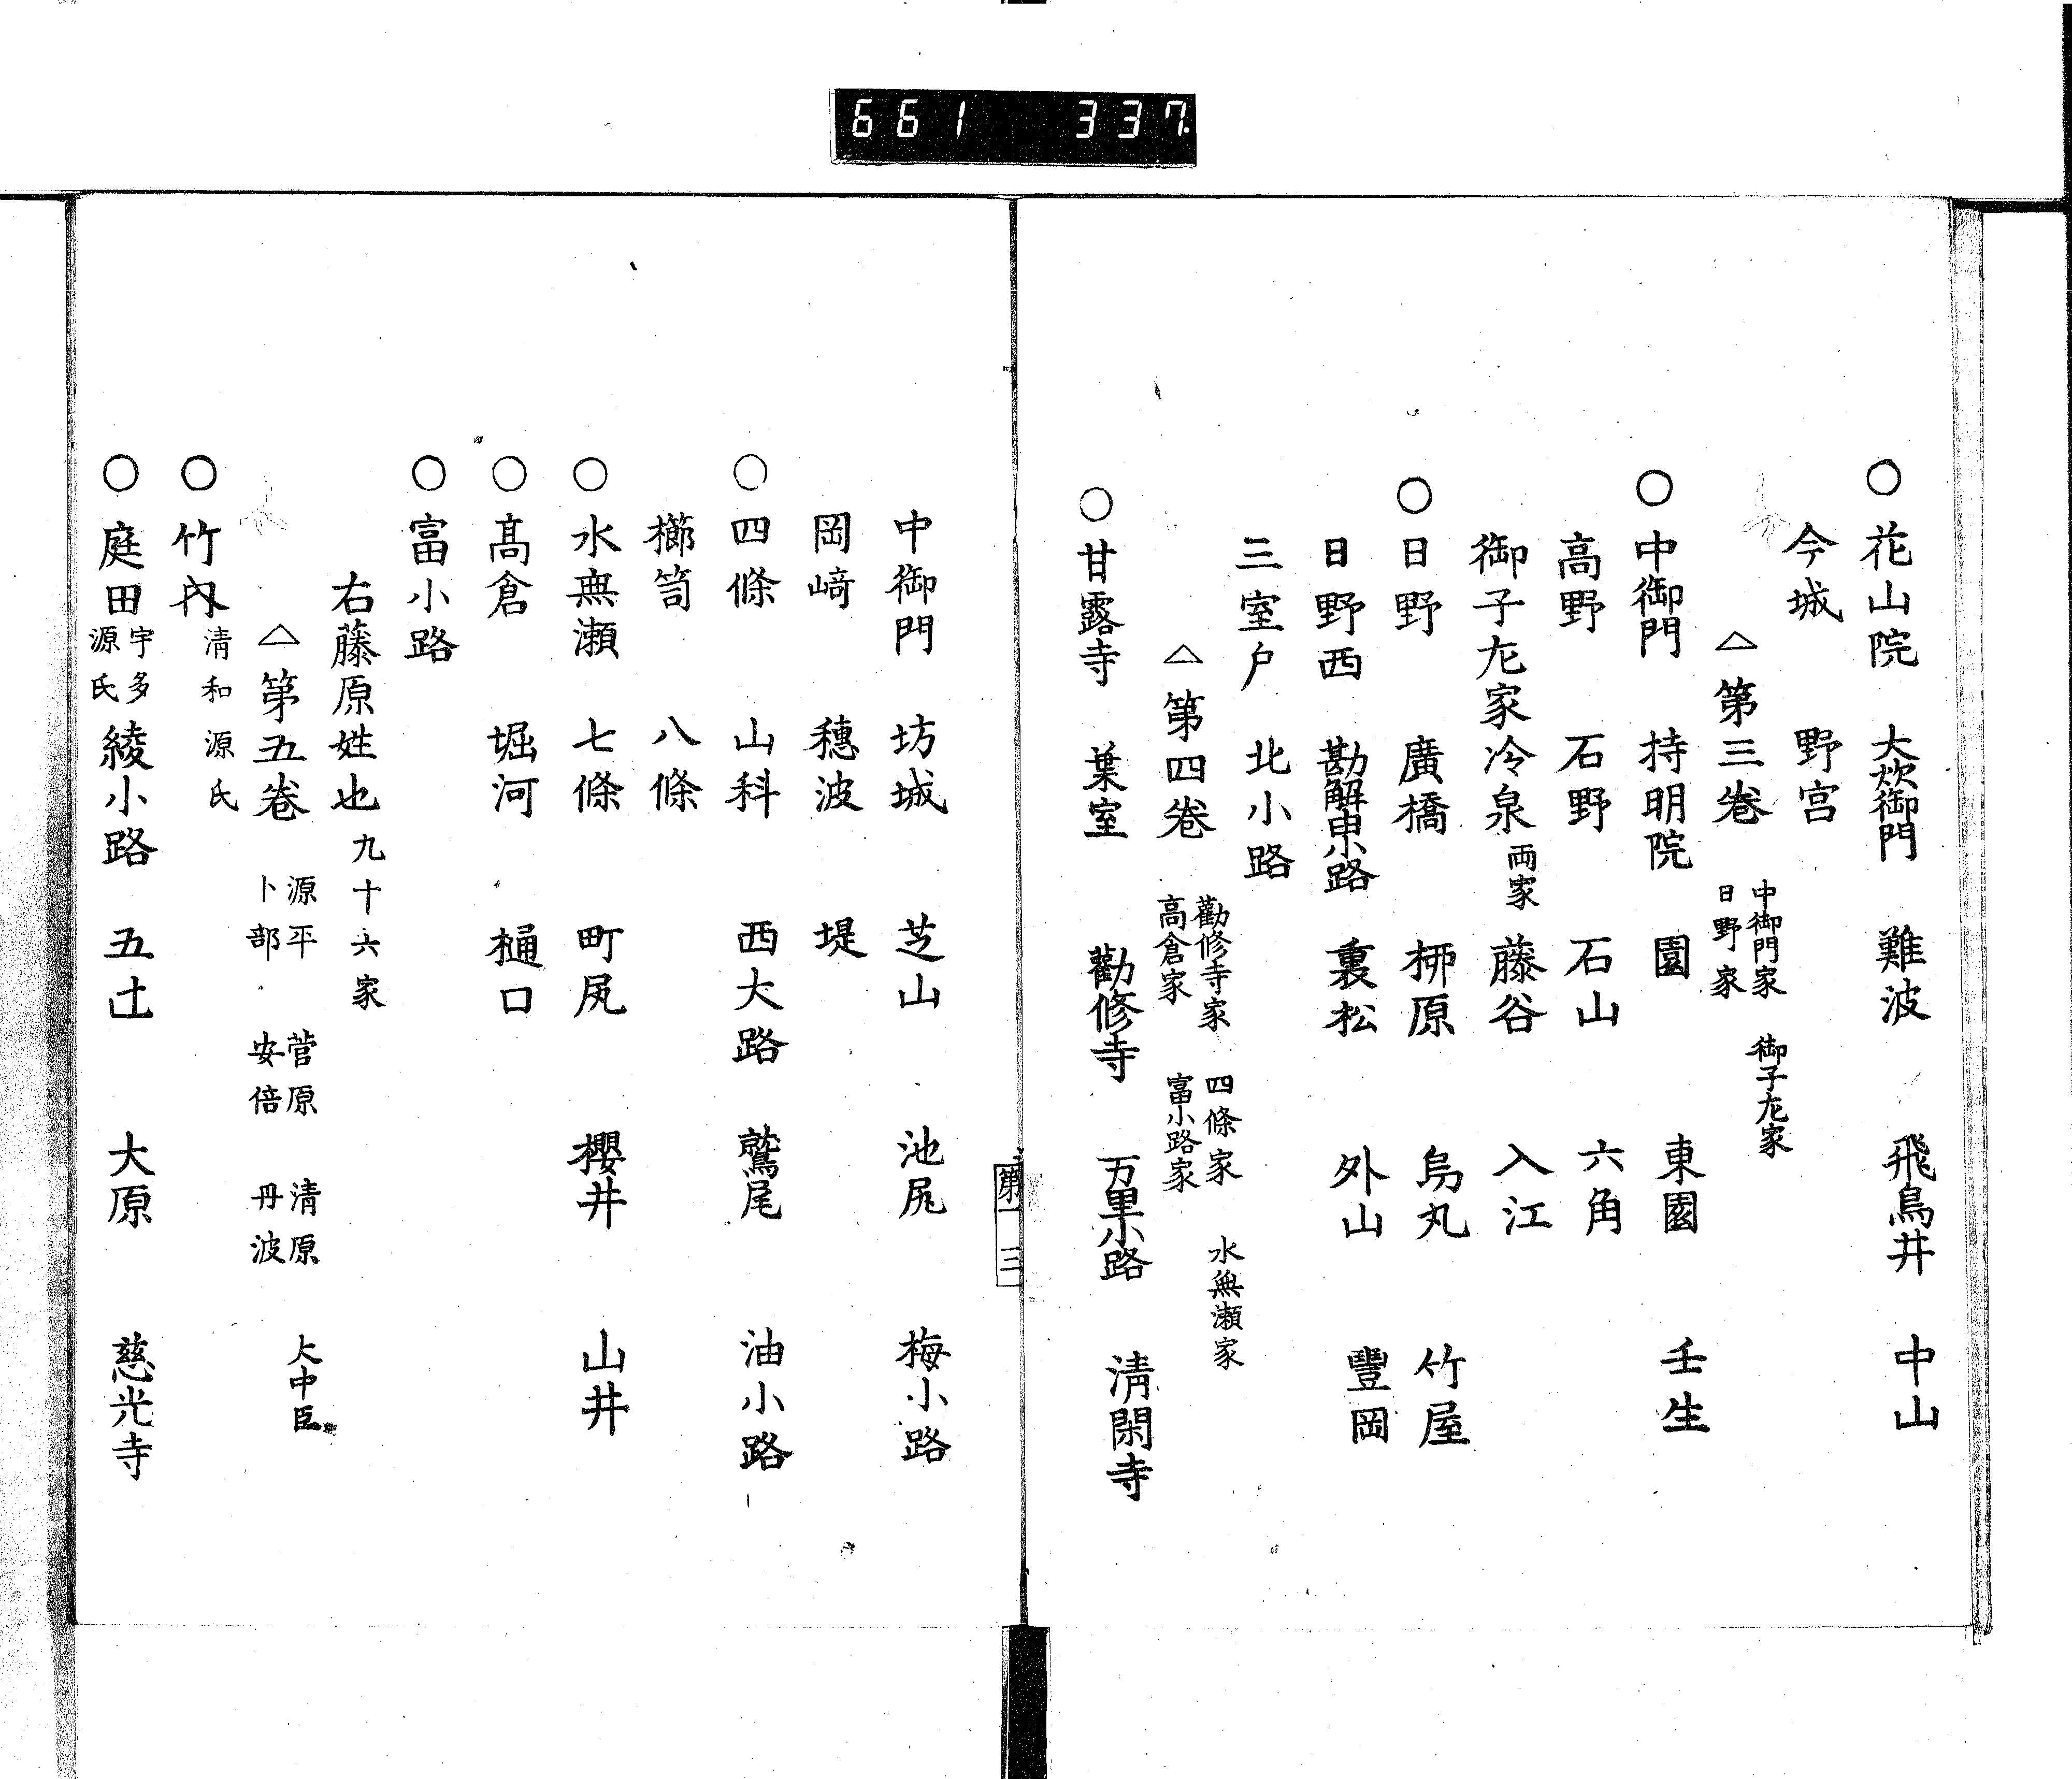 661 337.
○花山院 大炊御門 難波 飛鳥井 中山
今城 野宮
△第三巻 中御門家 日野家 御子左家
○中御門 持明院 園 東園 壬生
高野 石野 石山 六角
御子左家冷泉両家 藤谷 入江
○日野 廣橋 柳原 烏丸 竹屋
日野西 勘解由小路 裏松 外山 豐岡
三室戸 北小路
△第四巻 勸修寺家 高倉家 四條家 富小路家 水無瀬家
○甘露寺 葉室 勸修寺 万里小路 清閑寺
第一 三
中御門 坊城 芝山 池尻 梅小路
岡﨑 穗波 堤
○四條 山科 西大路 鷲尾 油小路
櫛笥 八條
○水無瀬 七條 町尻 櫻井 山井
○髙倉 堀河 樋口
○富小路
右藤原姓也 九十六家
△第五巻 源平 卜部 菅原 安倍 清原 丹波 大中臣
○竹内 清和源氏
○庭田 宇多源氏 綾小路 五辻 大原 慈光寺